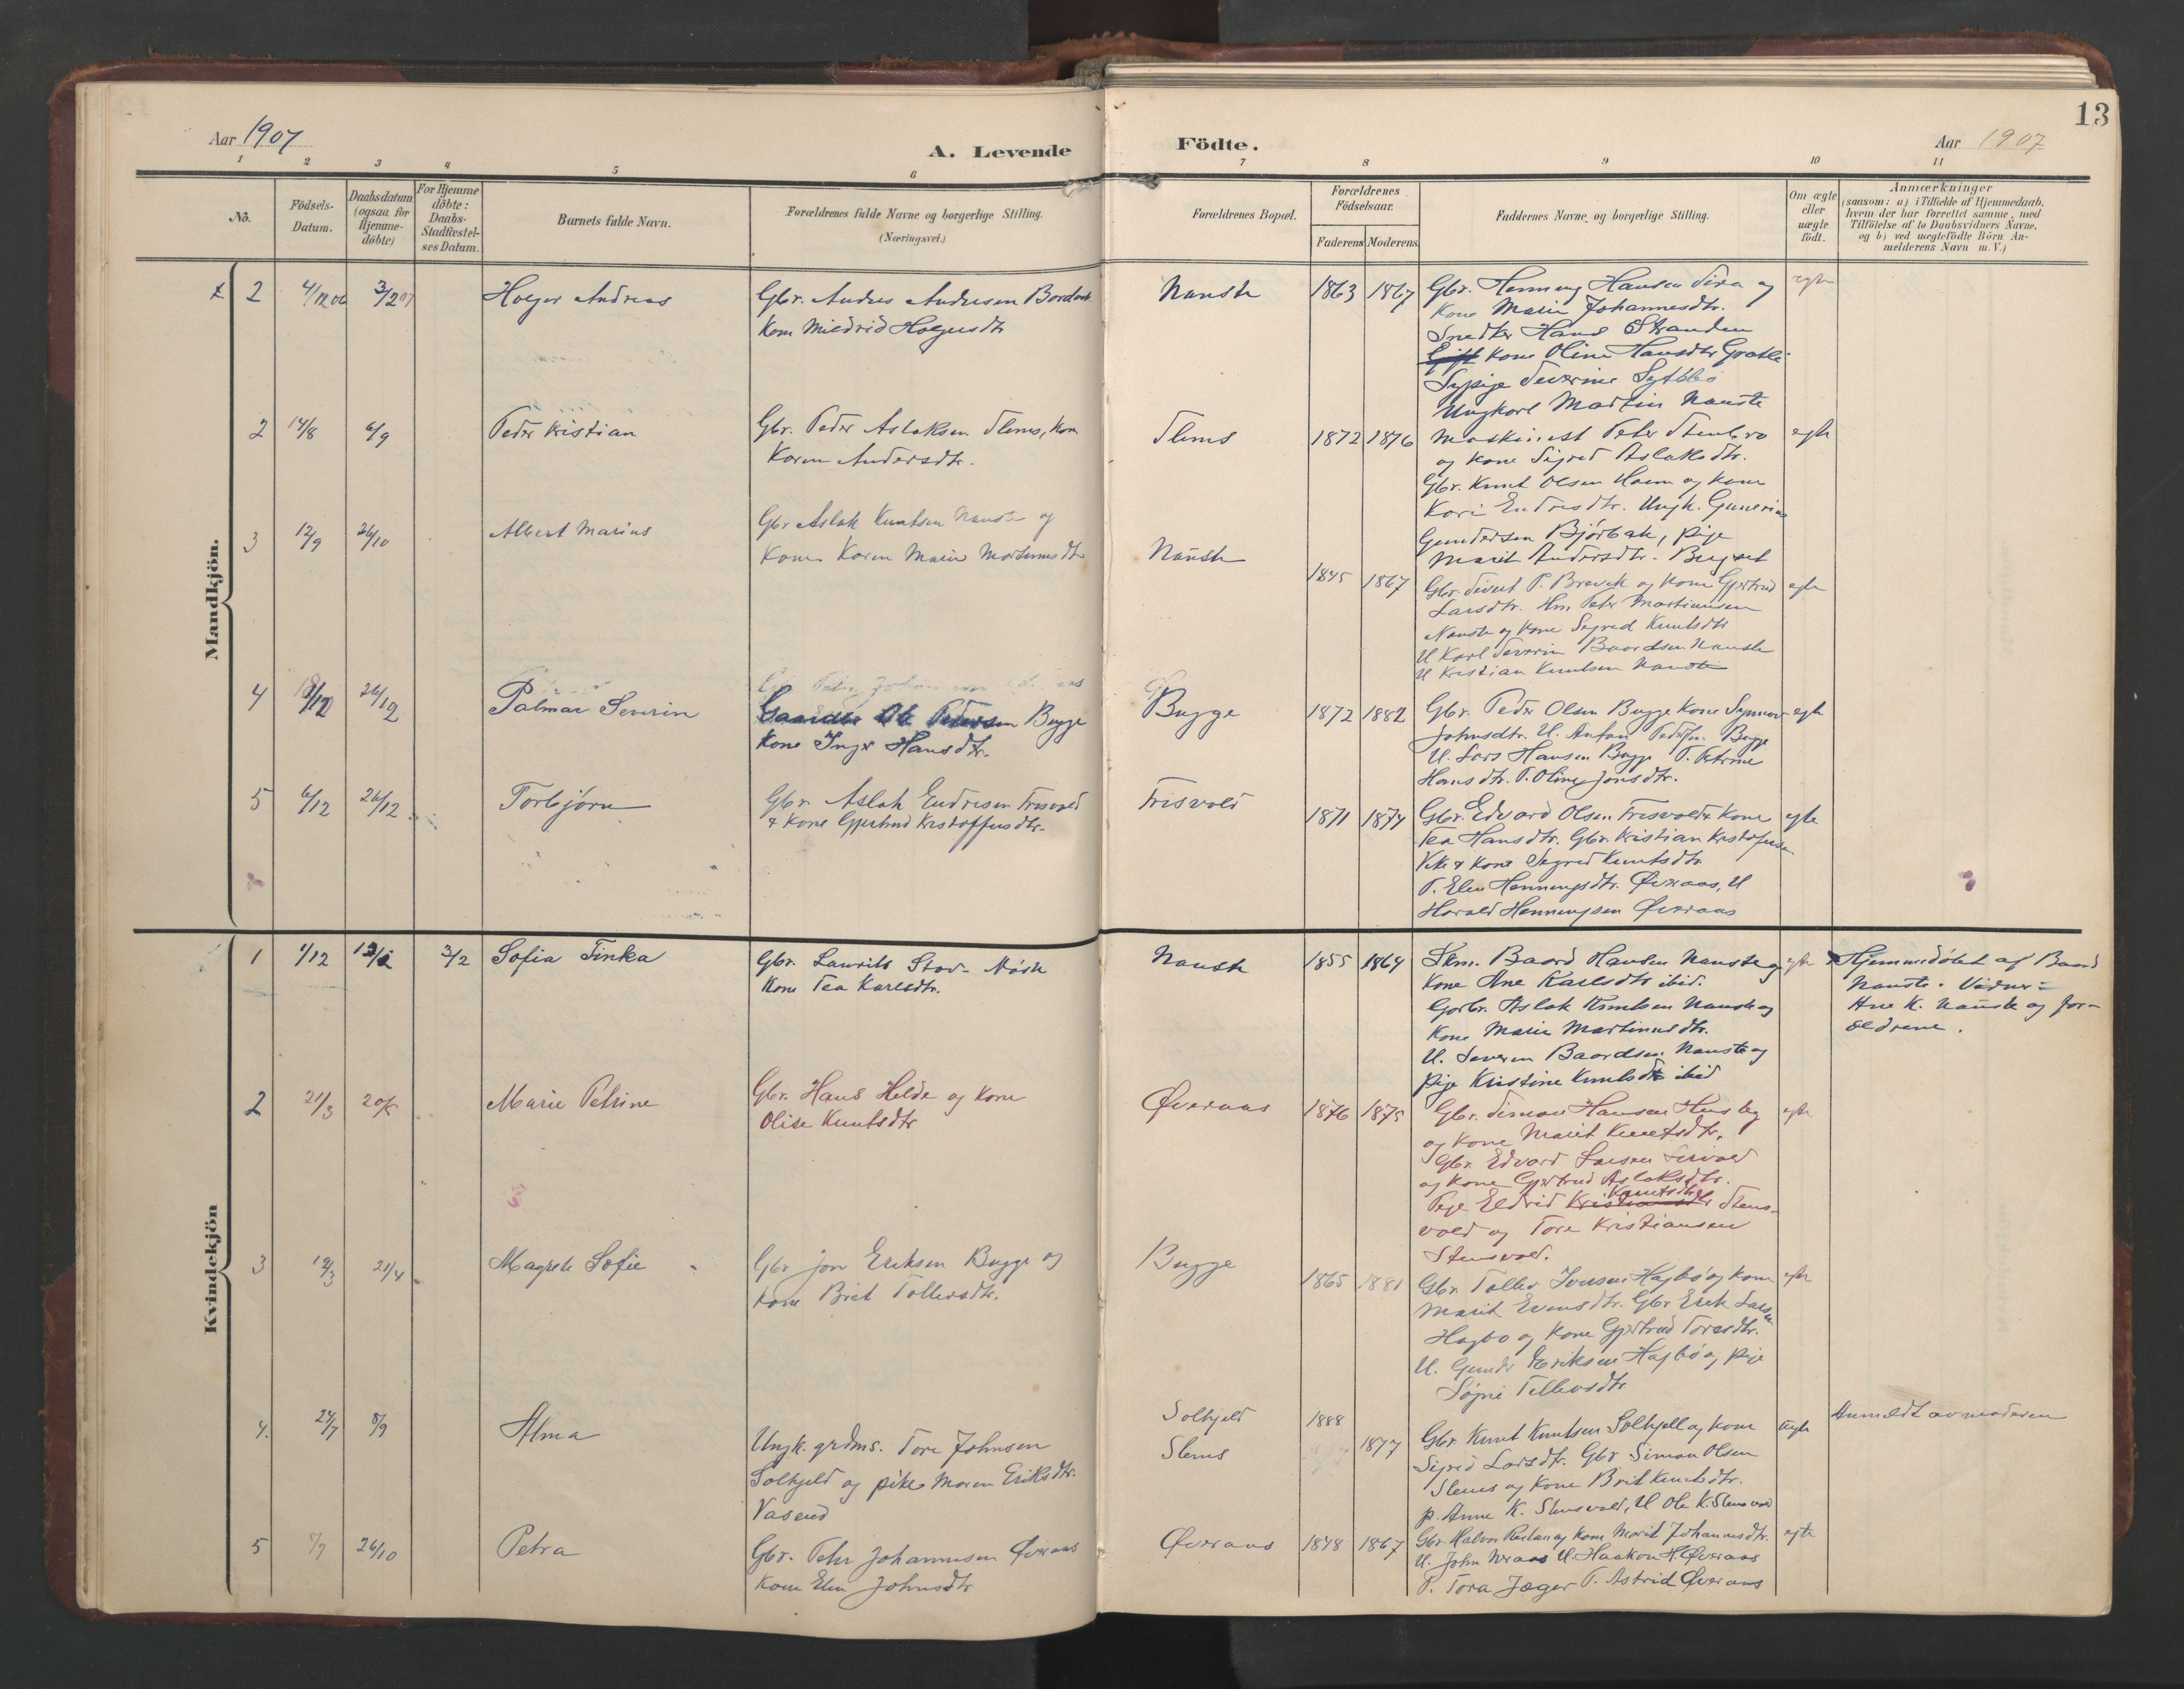 Aar 1907
A. Levende
Födte.
Aar 1907
13
1 2 3 4 5 6 7 8 9 10 11
No.
Födsels-
Datum.
Daabsdatum
(ogsaa for
Hjemme-
döbte)
For Hjemme
döbte:
Daabs-
Stadfæstel-
ses Datum.
Barnets fulde Navn.
Forældrenes fulde Navne og borgerlige Stilling.
(Næringsvei.)
Forældrenes Bopæl.
Forældrenes
Födselsaar.
Faderens
Moderens
Faddernes Navne og borgerlige Stilling.
Om ægte
eller
uægte
födt.
Anmærkninger
(saasom: a) i Tilfælde af Hjemmedaab,
hvem der har forrettet samme, med
Tilföielse af to Daabsvidners Navne.
og b) ved uægtefödte Börn An-
melderens Navn m.V.)
Mandkjön.
2 4/12 06 3/2 07 Holger Andreas
Gbr. Andres Andresen
Kone Mildrid Holgersdtr
Nauste 1863 1867
Gbr. Henning Hansen Tira og
Kone Marie Johannesdtr.
Snedker Hans Stranden
Kone Oline Hansdtr
Sypige Severine
Ungkarl Martin Nauste
egte
2 14/8 6/9 Peder Kristian
Gbr. Peder Aslaksen Slems, Kone
Karen Andersdtr.
Slems 1872 1876
Maskinist Peter Stenbro
og Kone Sigrid Aslaksdtr.
Gbr. Knut Olsen Hoem og Kone
Kari Endresdtr. Ungk. Gunerius
Gundersen Bjørbak, pige
Marit Andersdtr. Bugset
egte
3 12/9 26/10 Albert Marius
Gbr Aslak Knutsen Nauste og
Kone Karen Marie Martinusdtr
Nauste 1845 1867
Gbr. Sivert P. Brevik og Kone Gjertrud
Larsdtr. Hm. Peter Martinusen
Nauste og Kone Sigrid Knutsdtr
U Karl Severin Baardsen Nauste
U Kristian Knutsen Nauste
egte
4 26/12 Palmar Severin
Gaardbr Ole Pedersen Bugge
Kone Inger Hansdtr.
Bugge 1872 1882
Gbr. Peder Olsen Bugge Kone Synnøv
Johnsdtr. U. Anton Bugge
U. Lars Hansen Bugge P. Petrine
Hansdtr. P. Oline Jonsdtr.
egte
5 6/12 26/12 Torbjørn
Gbr. Aslak Endresen Frisvold
& Kone Gjertrud Kristoffersdtr.
Frisvold 1871 1874
Gbr. Edvard Olsen Frisvold & Kone
Tea Hansdtr. Gbr. Kristian Kristofersen
Vike & Kone Sigrid Knutsdtr
P. Elen Henningsdtr. Øveraas, U
Harald Henningsen Øveraas
egte
Kvindekjön
1 1/12 3/2 Sofia Tinka
Gbr. Laurits
Kone Tea Karlsdtr.
Nauste 1855 1864
Baard Hansen Nauste og
Kone Ane Karlsdtr ibid.
Gbr. Aslak Knutsen Nauste og
Kone Marie Martinusdtr.
U. Severin Baardsen Nauste og
pige Kristine Knutsdtr ibid
egte
Hjemmedøbt af Baard
Nauste. Vidner:
Ane K. Nauste og for-
ældrene.
2 21/3 Marie Petrine
Gbr. Hans Helde og Kone
Olise Knutsdtr
Øveraas 1876 1875
Gbr. Simon Hansen
og Kone Marit Knutsdtr.
Gbr. Edvard Larsen
og Kone Gjertrud Aslaksdtr.
Pige Eldrid Knutsdtr Stens-
vold og Tore Kristiansen
Stensvold.
egte
3 21/4 Magrete Sofie
Gbr Jon Eriksen Bugge og
Kone Brit Tollevsdtr.
Bugge 1865 1881
Gbr. Tollev Iversen Hagbø og Kone
Marit Evensdtr. Gbr Erik Larsen
Hagbø og Kone Gjertrud Toresdtr.
U. Gunder Eriksen Hagbø og pige
Tollevsdtr
egte
4. 24/7 8/9 Alma
Ungk. grdms. Tore Johnsen
Solhjeld og pike Maren Eriksdtr.
Vasend
Solhjeld
Slems
1888
1877
Gbr. Knut Knutsen Solhjell og Kone
Sigrid Larsdtr. Gbr Simon Olsen
Slems og Kone Brit Knutsdtr.
p. Anne K. Stensvold, U Ole K. Stensvold
uegte
Anmeldt av moderen
5 26/10 Petra
Gbr. Peter Johannesen Øveraas
Kone Elen Johnsdtr
Øveraas 1848 1867
Gbr. Halvor og Kone Marit Johannesdtr.
U. John Øveraas U. Haakon H. Øveraas
P. Tora Jæger P. Astrid Øveraas
egte